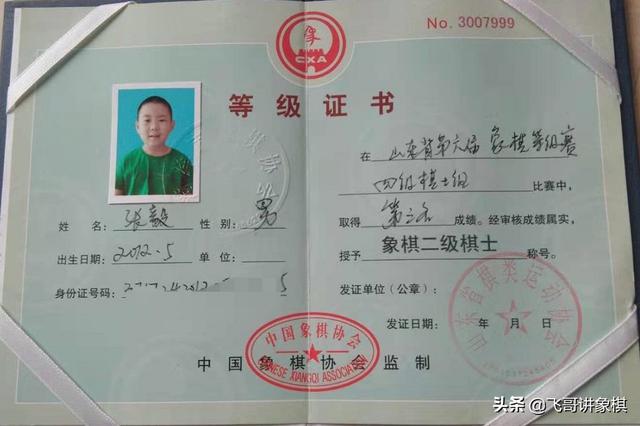 No. 3007999
象
CXA
等级证书
在 山东省第六届象棋等级赛
四级棋士组 比赛中,
取得 第三名 成绩。经审核成绩属实,
授予 象棋二级棋士 称号。
发证单位(公章):
发证日期: 年 月 日
姓 名: 张毅 性 别: 男
出生日期: 2012.5 单 位:
身份证号码:
中国象棋协会
CHINESE XIANGQI ASSOCIATION
山东省棋类运动协会
中国象棋协会监制
头条 @飞哥讲象棋